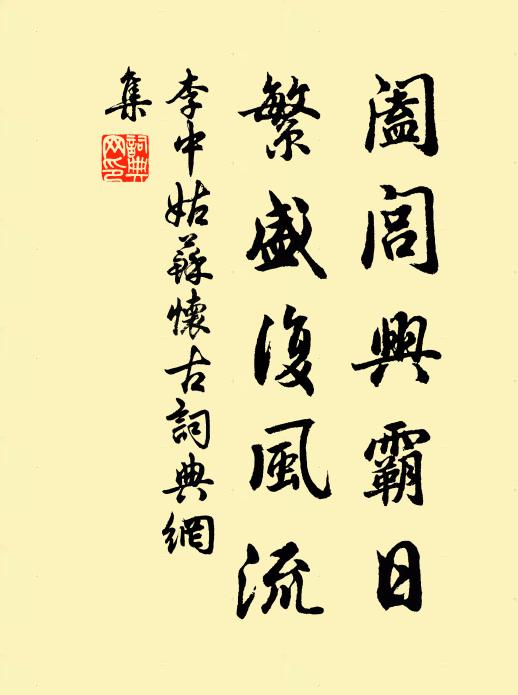 闔閭興霸日
繁盛復風流
李中姑蘇懷古詞典網
集
詞典網印